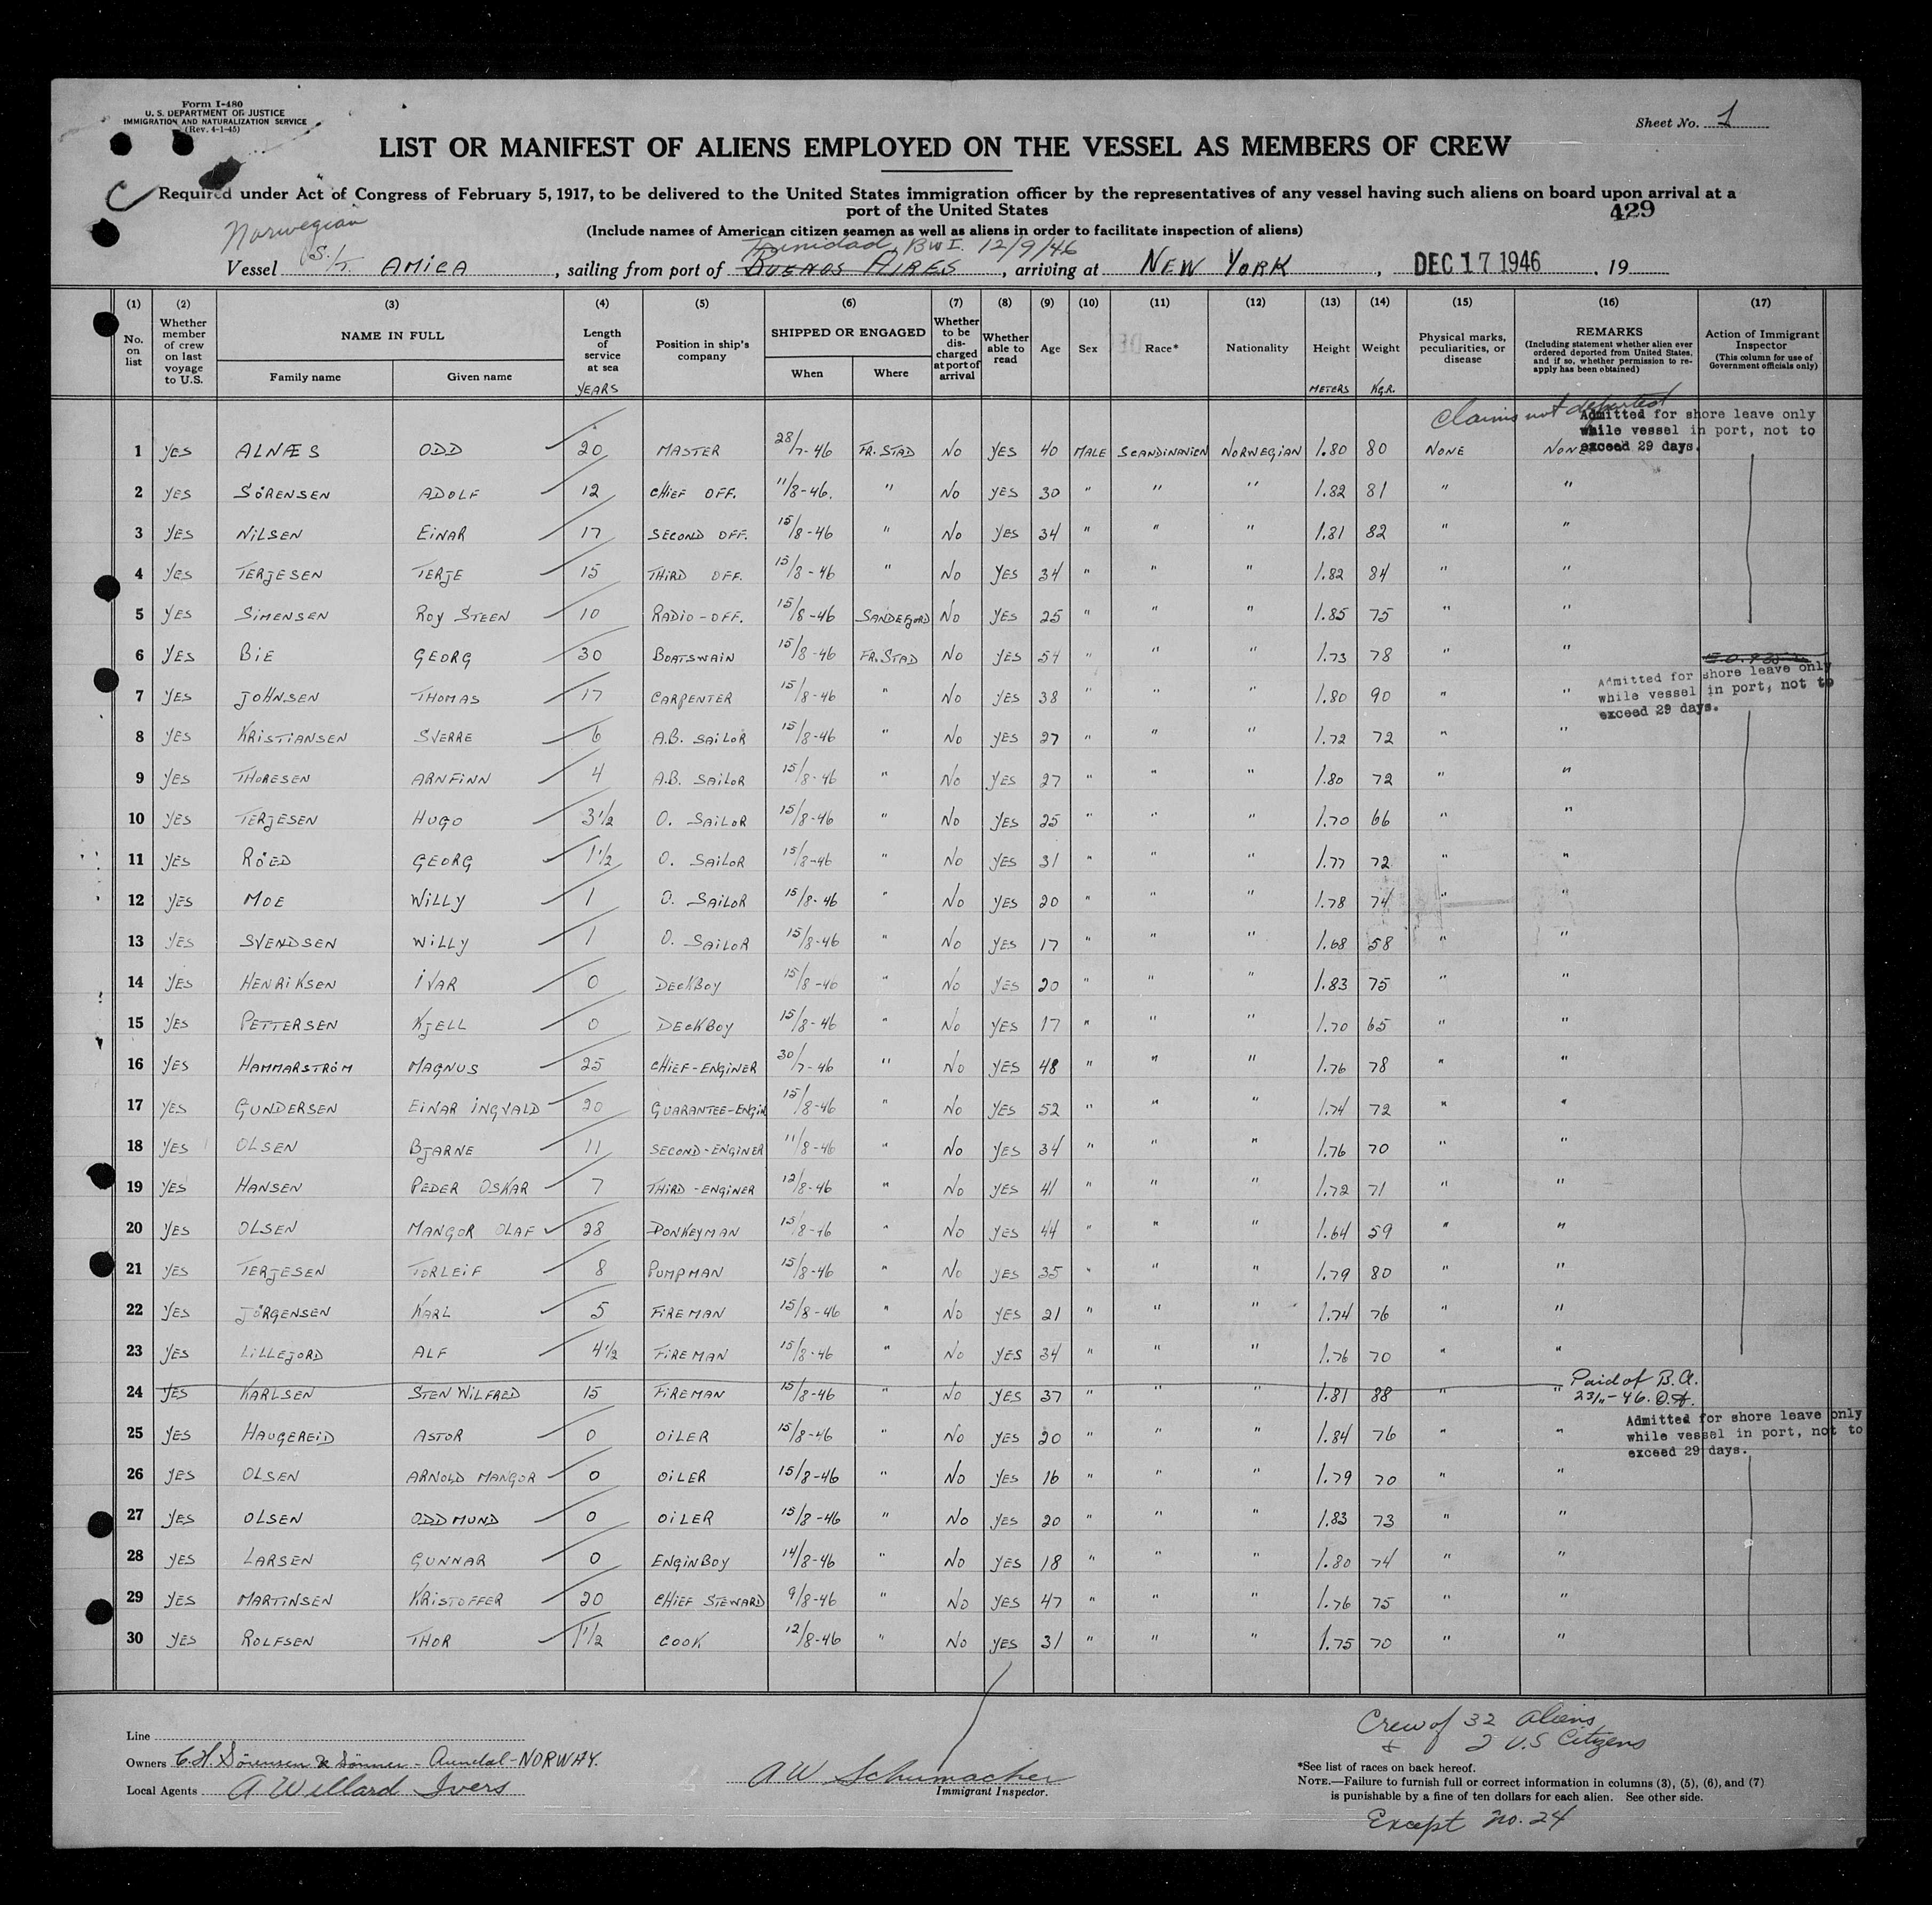 Form I-480
U. S. DEPARTMENT OF JUSTICE
IMMIGRATION AND NATURALIZATION SERVICE
(Rev. 4-1-45)
Sheet No. 1
LIST OR MANIFEST OF ALIENS EMPLOYED ON THE VESSEL AS MEMBERS OF CREW
Required under Act of Congress of February 5, 1917, to be delivered to the United States immigration officer by the representatives of any vessel having such aliens on board upon arrival at a
port of the United States
429
(Include names of American citizen seamen as well as aliens in order to facilitate inspection of aliens)
Norwegian
Trinidad, B.W.I. 12/9/46
Vessel S/T. AMICA, sailing from port of BUENOS AIRES, arriving at NEW YORK, DEC 17 1946, 19
(1) (2) (3) (4) (5) (6) (7) (8) (9) (10) (11) (12) (13) (14) (15) (16) (17)
No. on list
Whether member of crew on last voyage to U.S.
NAME IN FULL
Family name
Given name
Length of service at sea
YEARS
Position in ship's company
SHIPPED OR ENGAGED
When
Where
Whether to be discharged at port of arrival
Whether able to read
Age
Sex
Race*
Nationality
Height
METERS
Weight
KGR.
Physical marks, peculiarities, or disease
REMARKS
(Including statement whether alien ever ordered deported from United States, and if so, whether permission to reapply has been obtained)
Action of Immigrant Inspector
(This column for use of Government officials only)
Claims not deported
Admitted for shore leave only
while vessel in port, not to
exceed 29 days.
1 YES ALNÆS ODD 20 MASTER 28/7-46 FR.STAD NO YES 40 MALE SCANDINAVIEN NORWEGIAN 1.80 80 NONE NONE
2 YES SÖRENSEN ADOLF 12 CHIEF OFF. 11/8-46. " NO YES 30 " " " 1.82 81 " "
3 YES NILSEN EINAR 17 SECOND OFF. 15/8-46 " NO YES 34 " " " 1.81 82 " "
4 YES TERJESEN TERJE 15 THIRD OFF. 15/8-46 " NO YES 34 " " " 1.82 84 " "
5 YES SIMENSEN ROY STEEN 10 RADIO-OFF. 15/8-46 SANDEFJORD NO YES 25 " " " 1.85 75 " "
6 YES BIE GEORG 30 BOATSWAIN 15/8-46 FR.STAD NO YES 54 " " " 1.73 78 " "
Admitted for shore leave only
while vessel in port, not to
exceed 29 days.
7 YES JOHNSEN THOMAS 17 CARPENTER 15/8-46 " NO YES 38 " " " 1.80 90 " "
8 YES KRISTIANSEN SVERRE 6 A.B. SAILOR 15/8-46 " NO YES 27 " " " 1.72 72 " "
9 YES THORESEN ARNFINN 4 A.B. SAILOR 15/8-46 " NO YES 27 " " " 1.80 72 " "
10 YES TERJESEN HUGO 3 1/2 O. SAILOR 15/8-46 " NO YES 25 " " " 1.70 66 " "
11 YES RÖED GEORG 1 1/2 O. SAILOR 15/8-46 " NO YES 31 " " " 1.77 72 " "
12 YES MOE WILLY 1 O. SAILOR 15/8-46 " NO YES 20 " " " 1.78 74 " "
13 YES SVENDSEN WILLY 1 O. SAILOR 15/8-46 " NO YES 17 " " " 1.68 58 " "
14 YES HENRIKSEN IVAR 0 DECKBOY 15/8-46 " NO YES 20 " " " 1.83 75 " "
15 YES PETTERSEN KJELL 0 DECKBOY 15/8-46 " NO YES 17 " " " 1.70 65 " "
16 YES HAMMARSTRÖM MAGNUS 25 CHIEF-ENGINER 30/7-46 " NO YES 48 " " " 1.76 78 " "
17 YES GUNDERSEN EINAR INGVALD 20 GUARANTEE-ENGIN 15/8-46 " NO YES 52 " " " 1.74 72 " "
18 YES OLSEN BJARNE 11 SECOND-ENGINER 11/8-46 " NO YES 34 " " " 1.76 70 " "
19 YES HANSEN PEDER OSKAR 7 THIRD-ENGINER 12/8-46 " NO YES 41 " " " 1.72 71 " "
20 YES OLSEN MANGOR OLAF 28 DONKEYMAN 15/8-46 " NO YES 44 " " " 1.64 59 " "
21 YES TERJESEN TORLEIF 8 PUMPMAN 15/8-46 " NO YES 35 " " " 1.79 80 " "
22 YES JÖRGENSEN KARL 5 FIREMAN 15/8-46 " NO YES 21 " " " 1.74 76 " "
23 YES LILLEJORD ALF 4 1/2 FIREMAN 15/8-46 " NO YES 34 " " " 1.76 70 " "
24 YES KARLSEN STEN WILFRED 15 FIREMAN 15/8-46 " NO YES 37 " " " 1.81 88 " " Paid of B.A. 23/11-46. O.A.
Admitted for shore leave only
while vessel in port, not to
exceed 29 days.
25 YES HAUGEREID ASTOR 0 OILER 15/8-46 " NO YES 20 " " " 1.84 76 " "
26 YES OLSEN ARNOLD MANGOR 0 OILER 15/8-46 " NO YES 16 " " " 1.79 70 " "
27 YES OLSEN ODDMUND 0 OILER 15/8-46 " NO YES 20 " " " 1.83 73 " "
28 YES LARSEN GUNNAR 0 ENGINBOY 14/8-46 " NO YES 18 " " " 1.80 74 " "
29 YES MARTINSEN KRISTOFFER 20 CHIEF STEWARD 9/8-46 " NO YES 47 " " " 1.76 75 " "
30 YES ROLFSEN THOR 1 1/2 COOK 12/8-46 " NO YES 31 " " " 1.75 70 " "
Crew of 32 aliens
& 2 U.S Citizens
Line
Owners C.H. Sörensen & Sönner - Arendal - NORWAY.
Local Agents A Willard Ivers
A W Schumacher
Immigrant Inspector.
*See list of races on back hereof.
NOTE.—Failure to furnish full or correct information in columns (3), (5), (6), and (7)
is punishable by a fine of ten dollars for each alien. See other side.
Except no. 24